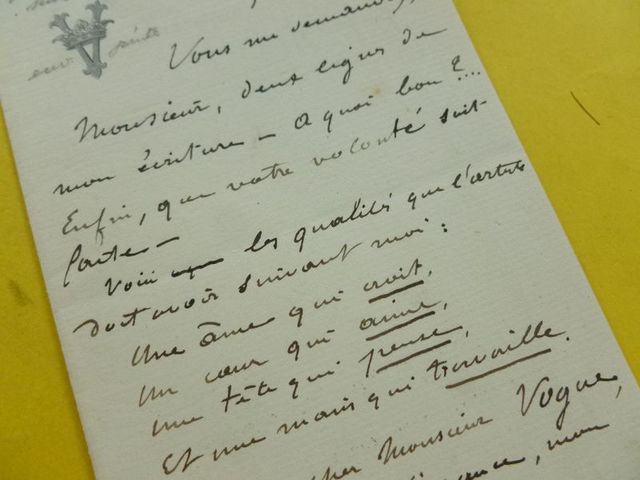 Vous me demandez,
Monsieur, deux lignes de
mon écriture — A quoi bon ?...
Enfin, que votre volonté soit
faite —
Voici les qualités que l'artiste
doit avoir suivant moi :
Une âme qui croit,
Un cœur qui aime,
une tête qui pense,
Et une main qui travaille.
cher Monsieur Vogue,
mon